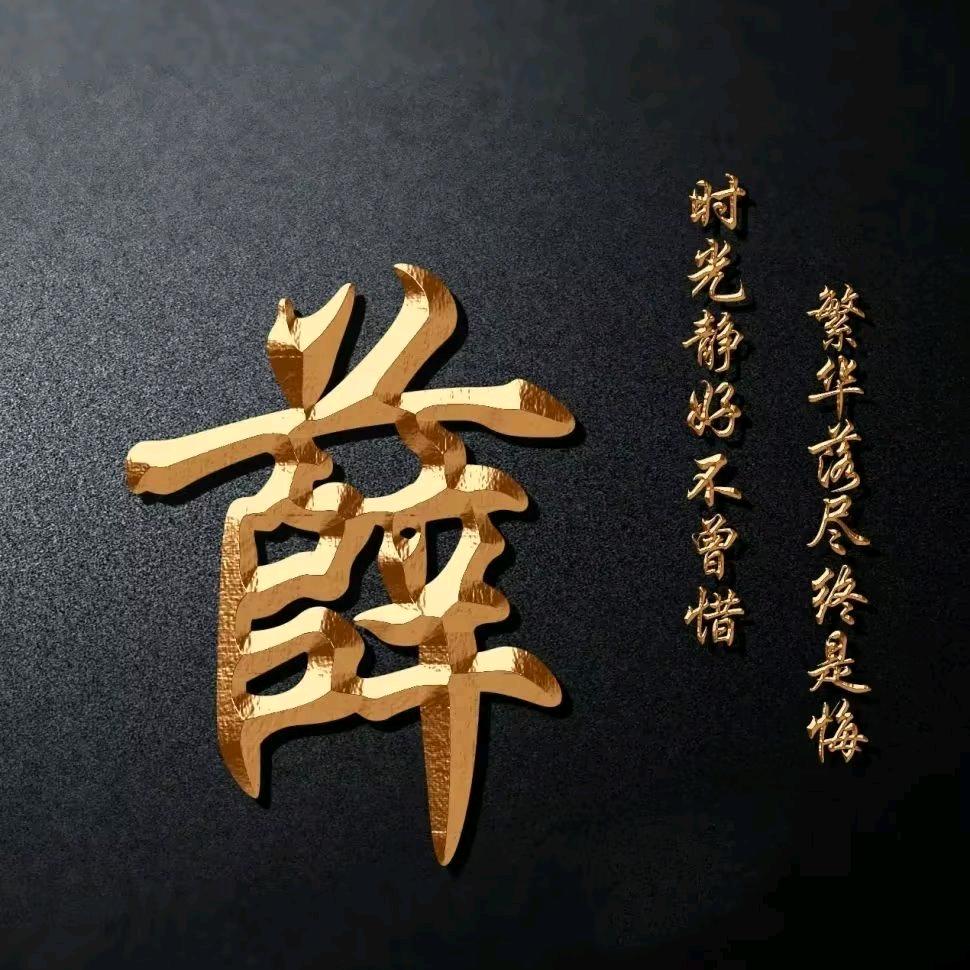 薛
时光静好不曾惜
繁华落尽终是悔